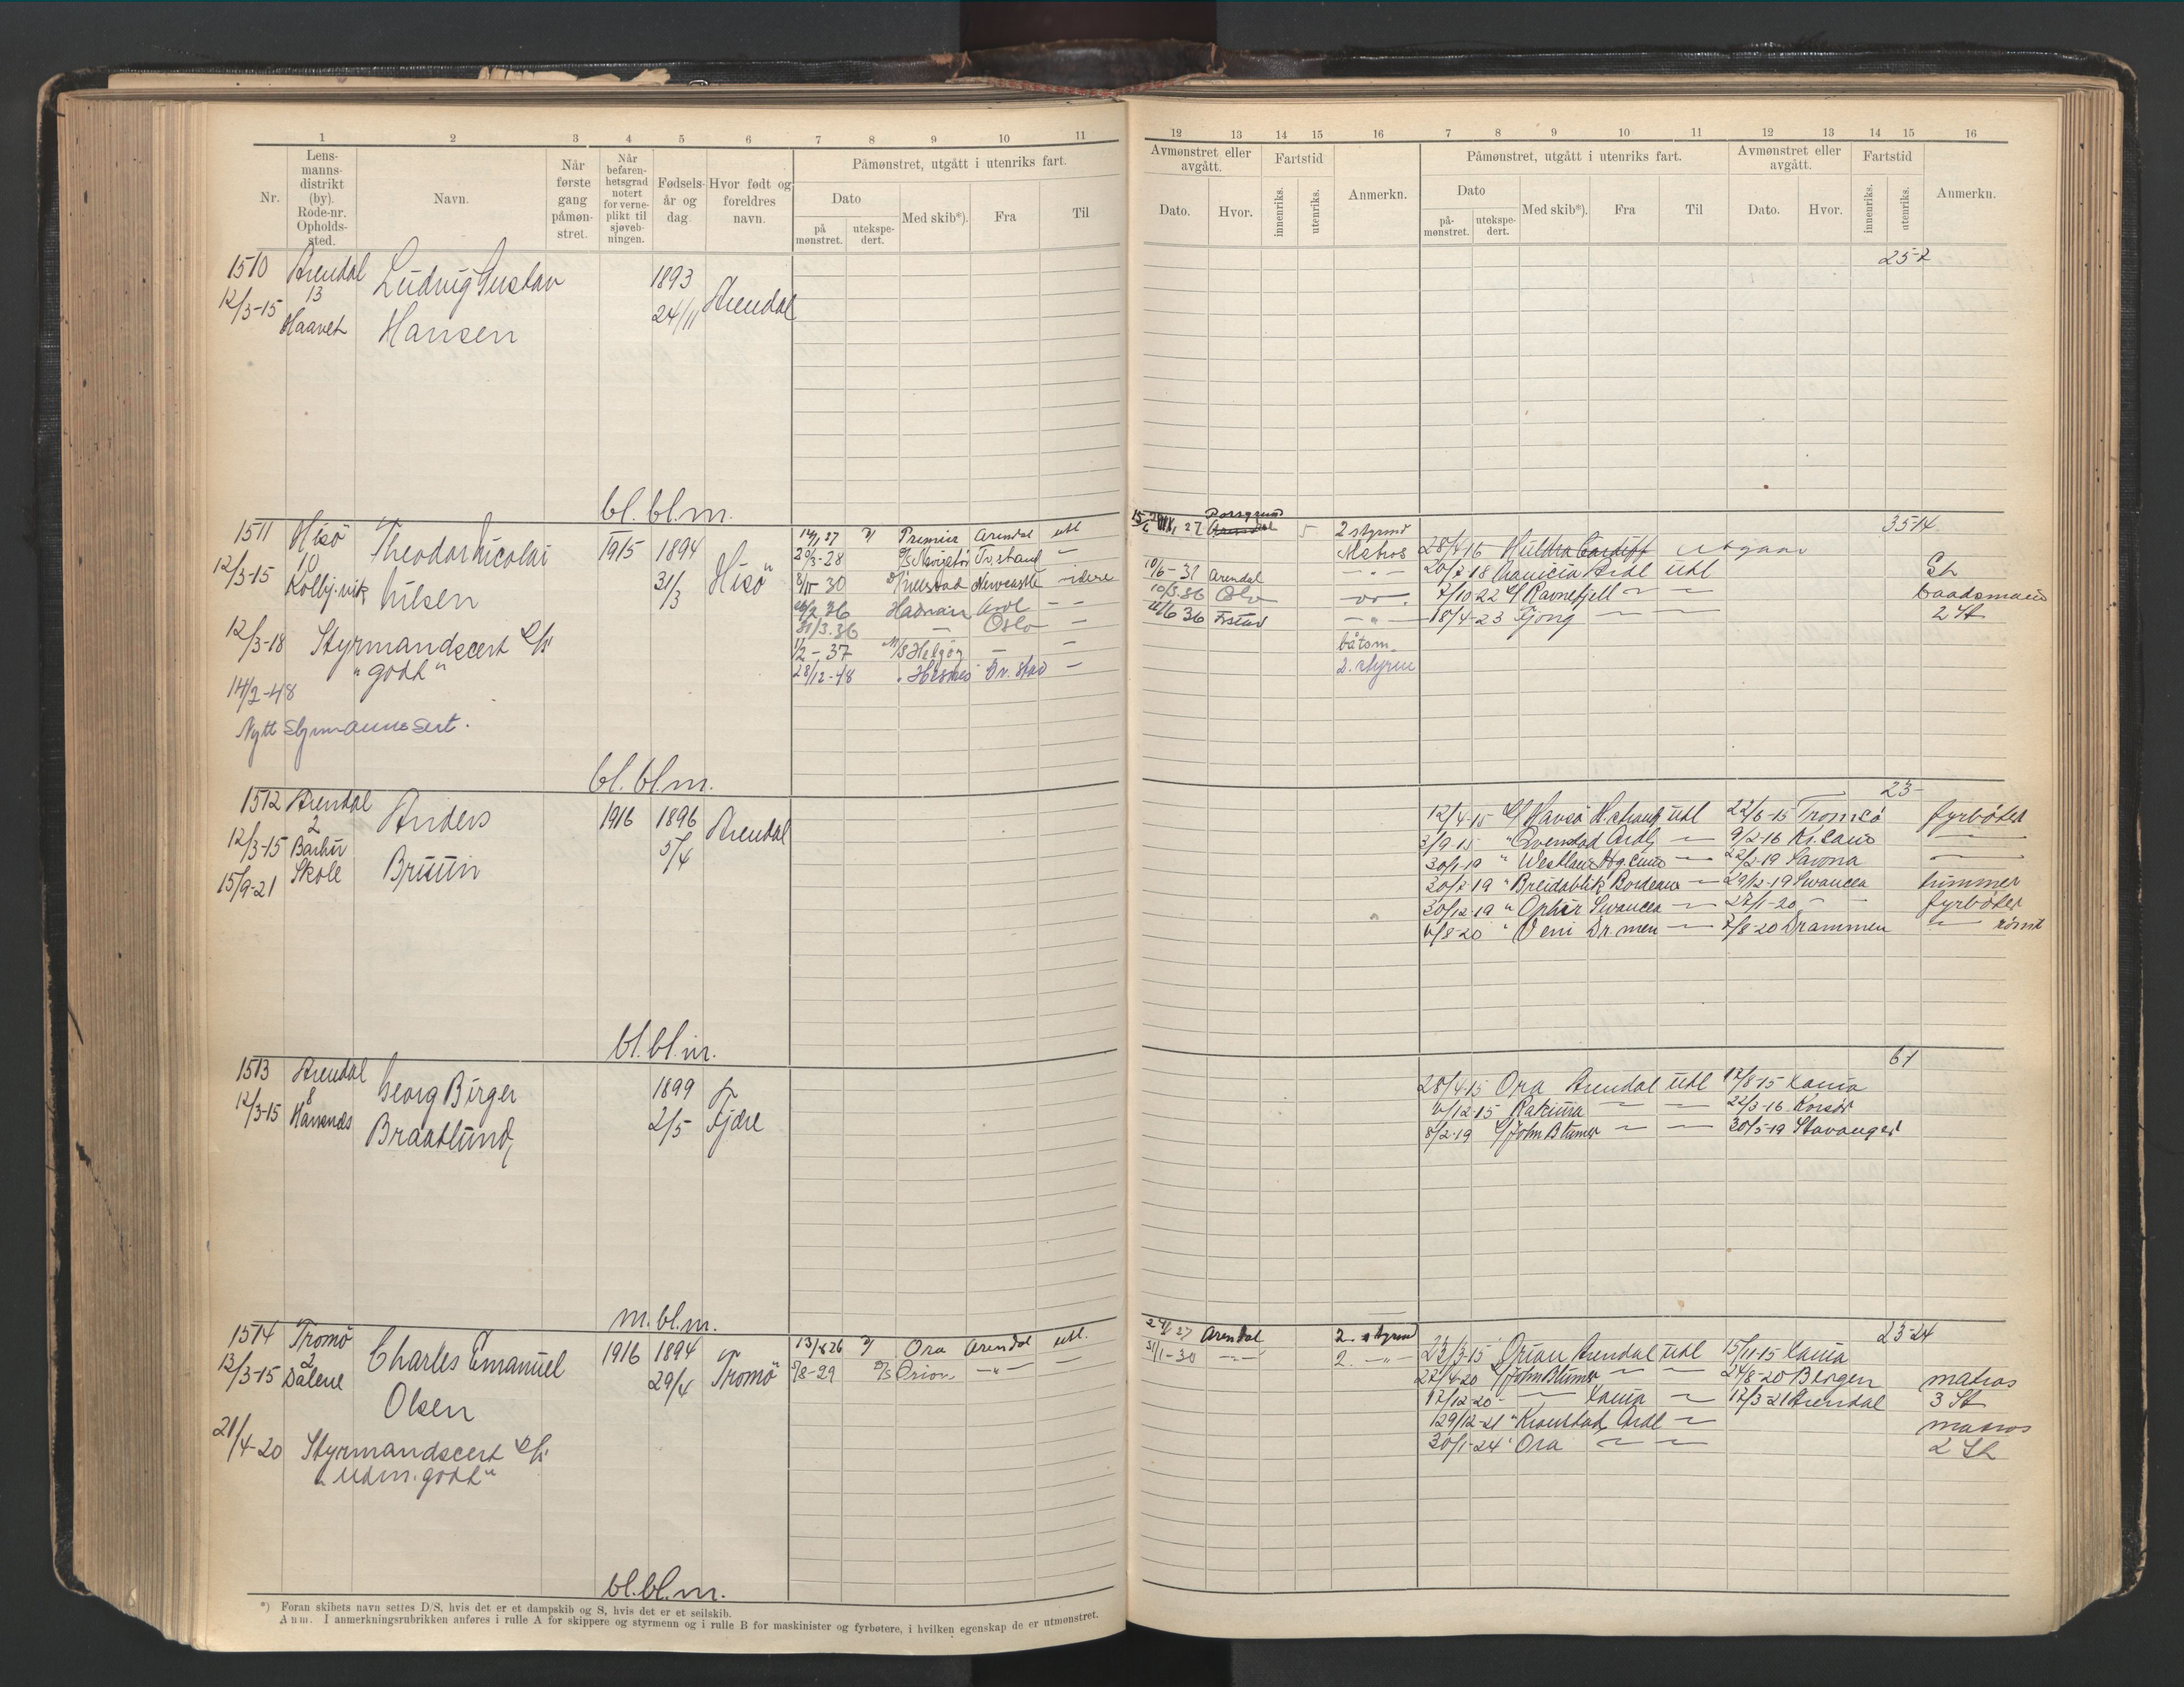 1 2 3 4 5 6 7 8 9 10 11
Nr.
Lens-
manns-
distrikt
(by).
Rode-nr.
Opholds-
sted.
Navn.
Når
første
gang
påmøn-
stret.
Når
befaren-
hetsgrad
notert
for verne-
plikt til
sjøveb-
ningen.
Fødsels-
år og
dag.
Hvor født og
foreldres
navn.
Påmønstret, utgått i utenriks fart.
Dato
på
mønstret.
utekspe-
dert.
Med skib*).
Fra
Til
12 13 14 15 16 7 8 9 10 11 12 13 14 15 16
Avmønstret eller
avgått.
Dato.
Hvor.
Fartstid
innenriks.
utenriks.
Anmerkn.
Påmønstret, utgått i utenriks fart.
Dato
på-
mønstret.
utekspe-
dert.
Med skib*).
Fra
Til
Avmønstret eller
avgått.
Dato.
Hvor.
Fartstid
innenriks.
utenriks.
Anmerkn.
1510 Arendal Ludvig Gustav 1893 Arendal
12/3-15 13 Hansen 24/11
Haavet
25-2
bl. bl. m.
1511 Hisö Theodor Nicolai 1915 1894 Hisö
12/3-15 1 Nilsen 31/3
Kolbj.vik
12/3-18 Styrmandscert
"godt"
14/2-48
Nytt Styrmanns sert.
Premier Arendal utl
20/3-28 Navigatör Tv.strand —
30 Newcastle — videre
Hadrian Ardl — —
31/3.36 — Oslo —
1/2-37 M/S Helgöy — —
28/12-48 Hisnes Tv. strd —
27 Porsgrund Arendal 5 2 styrmd
Matros
10/6-31 Arendal — " —
10/3.36 Oslo
36
— " —
båtsm.
2. styrm
35-14
28/4-16 Huldra Cardiff utgaar
20/7 18 Ardl utl St
7/10 22 Ravnefjell — — baadsmand
18/4-23 Fjong — — 2 St
bl. bl. m.
1512 Arendal Anders 1916 1896 Arendal
12/3-15 2 Bruun 5/4
Barbu
15/9-21 Skole
23-
12/4-15 Havsö utl 22/6-15 Tromsö fyrböter
3/9-15 " Qvenstad Ardl — 9/2-16 —
30/1-19 " — 22/2-19 Savona —
20/7-19 " Breidablik Bordeaux — 29/12-19 Swansea trimmer
30/12-19 " Ophir Swansea — 27/1-20 — fyrböter
" Veni Dr.men — 7/8-20 Drammen — römt
bl. bl. m.
1513 Arendal Georg Birger 1899 Fjære
12/3-15 8 Braatlund, 2/5
61
28/4-15 Ora Arendal utl 17/8-15 Xania
12-15 — — 22/3-16 Korsör
8/2-19 John Blumer — — 30/5-19 Stavanger
m. bl. m.
1514 Tromö Charles Emanuel 1916 1894 Tromö
13/3-15 2 Olsen 29/4
Dalene
21/4-20 Styrmandscert
"udm. godt"
26 Ora Arendal utl.
8-29 D/S Orion — " — —
27 Arendal 2. styrmd
31/1-30 — " — 2. — " —
23-24
23/3-15 Orion Arendal utl 15/11-15 Xania
27/4-20 John Blumer — — 24/8-20 Bergen matros
17/12-20 — Xania — 17/3-21 Arendal 3 St
29/12-21 " Ardl — matros
30/1-24 " Ora — — 2 St
bl. bl. m.
*) Foran skibets navn settes D/S, hvis det er et dampskib og S, hvis det er et seilskib.
Anm. I anmerkningsrubrikken anføres i rulle A for skippere og styrmenn og i rulle B for maskinister og fyrbøtere, i hvilken egenskap de er utmønstret.